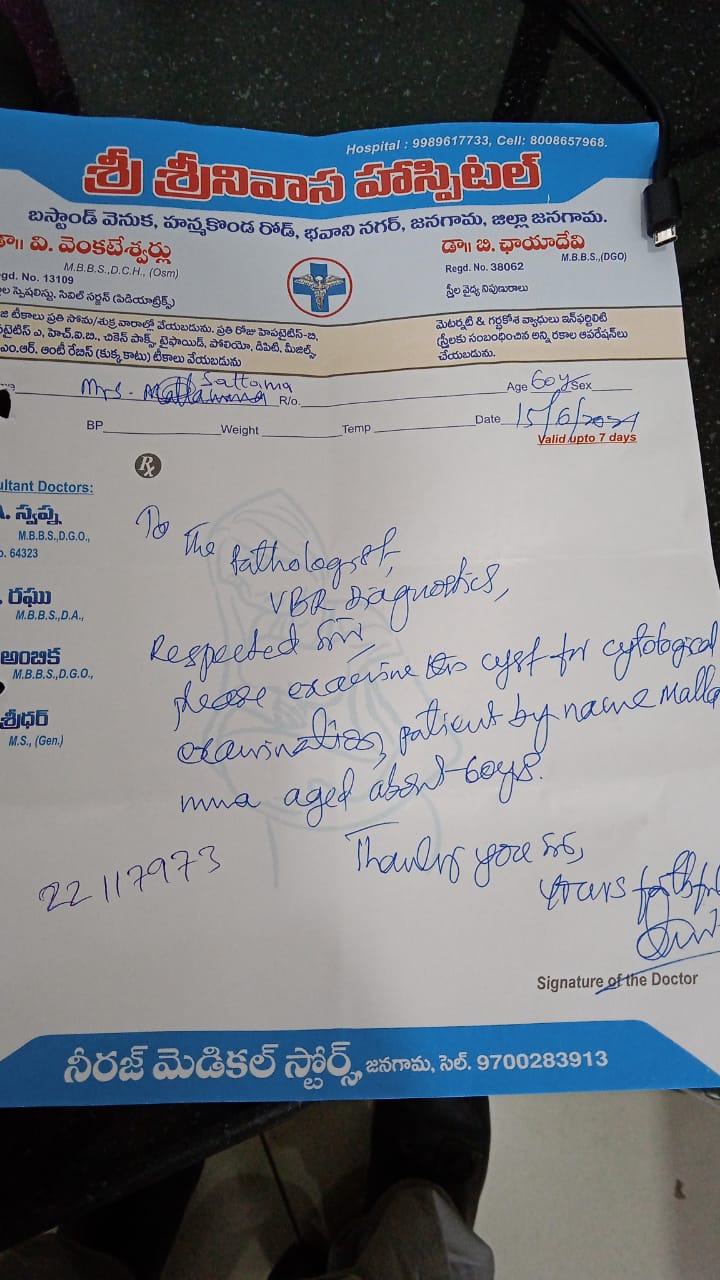 Hospital : 9989617733, Cell: 8008657968.
శ్రీ శ్రీనివాస హాస్పిటల్
బస్టాండ్ వెనుక, హన్మకొండ రోడ్, భవాని నగర్, జనగామ, జిల్లా జనగామ.
డా॥ వి. వెంకటేశ్వర్లు
M.B.B.S.,D.C.H., (Osm)
gd. No. 13109
ల స్పెషలిస్టు, సివిల్ సర్జన్ (పిడియాట్రిక్స్)
డా॥ బి. ఛాయాదేవి
M.B.B.S.,(DGO)
Regd. No. 38062
స్త్రీల వైద్య నిపుణురాలు
టీకాలు ప్రతి సోమ/శుక్ర వారాల్లో వేయబడును. ప్రతి రోజు హెపటైటిస్-బి,
పటైటిస్ ఎ, హెచ్.ఐ.బి., చికెన్ పాక్స్, టైఫాయిడ్, పోలియో, డిపిటి, మీజిల్స్,
ఎం.ఆర్. ఆంటీ రేబిస్ (కుక్క కాటు) టీకాలు వేయబడును
మెటర్నటీ & గర్భకోశ వ్యాధులు ఇన్‌ఫర్టిలిటి
స్త్రీలకు సంబంధించిన అన్ని రకాల ఆపరేషన్‌లు
చేయబడును.
Mrs. Sattama R/o. Age 60y Sex
BP Weight Temp Date 15/6/2024
Valid upto 7 days
Rx
ultant Doctors:
స్వప్న
M.B.B.S.,D.G.O.,
o. 64323
రఘు
M.B.B.S.,D.A.,
అంబిక
M.B.B.S.,D.G.O.,
శ్రీధర్
M.S., (Gen.)
To
The Pathologist,
VBR Diagnostics,
Respected Sir,
please examine this cyst for cytological
examination, patient by name Malla
mma aged about 60ys.
Thanking you sir,
yours faithful
22117973
Signature of the Doctor
నీరజ్ మెడికల్ స్టోర్స్, జనగామ, సెల్. 9700283913